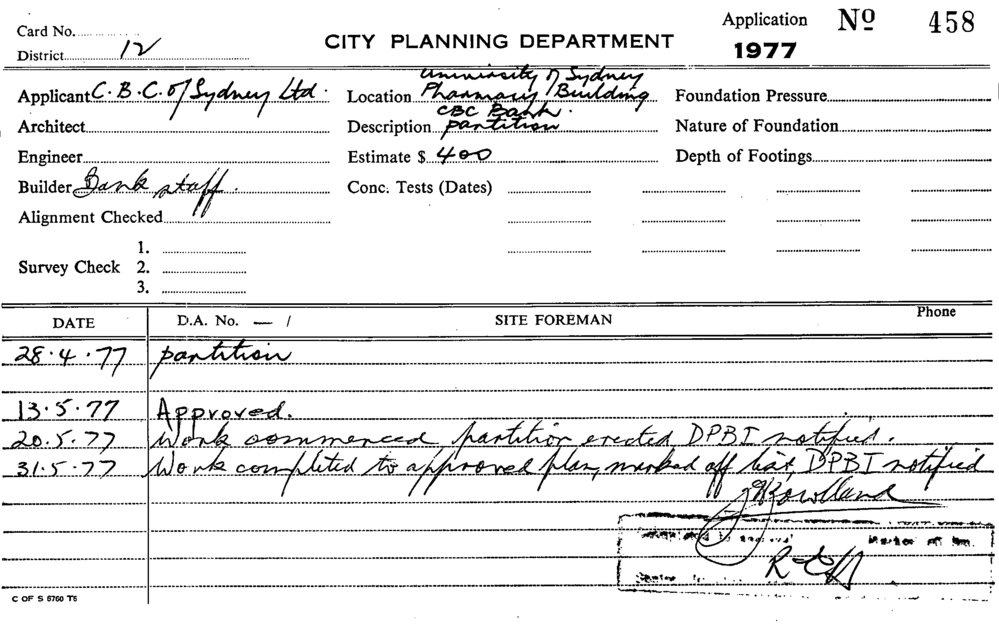 Card No.
Application No 458
District 12
CITY PLANNING DEPARTMENT
1977
University of Sydney
Applicant C.B.C. of Sydney Ltd. Location Pharmacy Building Foundation Pressure
CBC Bank.
Architect Description partition Nature of Foundation
Engineer Estimate $ 400 Depth of Footings
Builder Bank staff. Conc. Tests (Dates)
Alignment Checked
1.
Survey Check 2.
3.
DATE D.A. No. — / SITE FOREMAN Phone
28.4.77 partition
13.5.77 Approved.
20.5.77 Work commenced partition erected DPBI notified.
31.5.77 Work completed to approved plan, marked off list, DPBI notified
C OF S 5760 T5